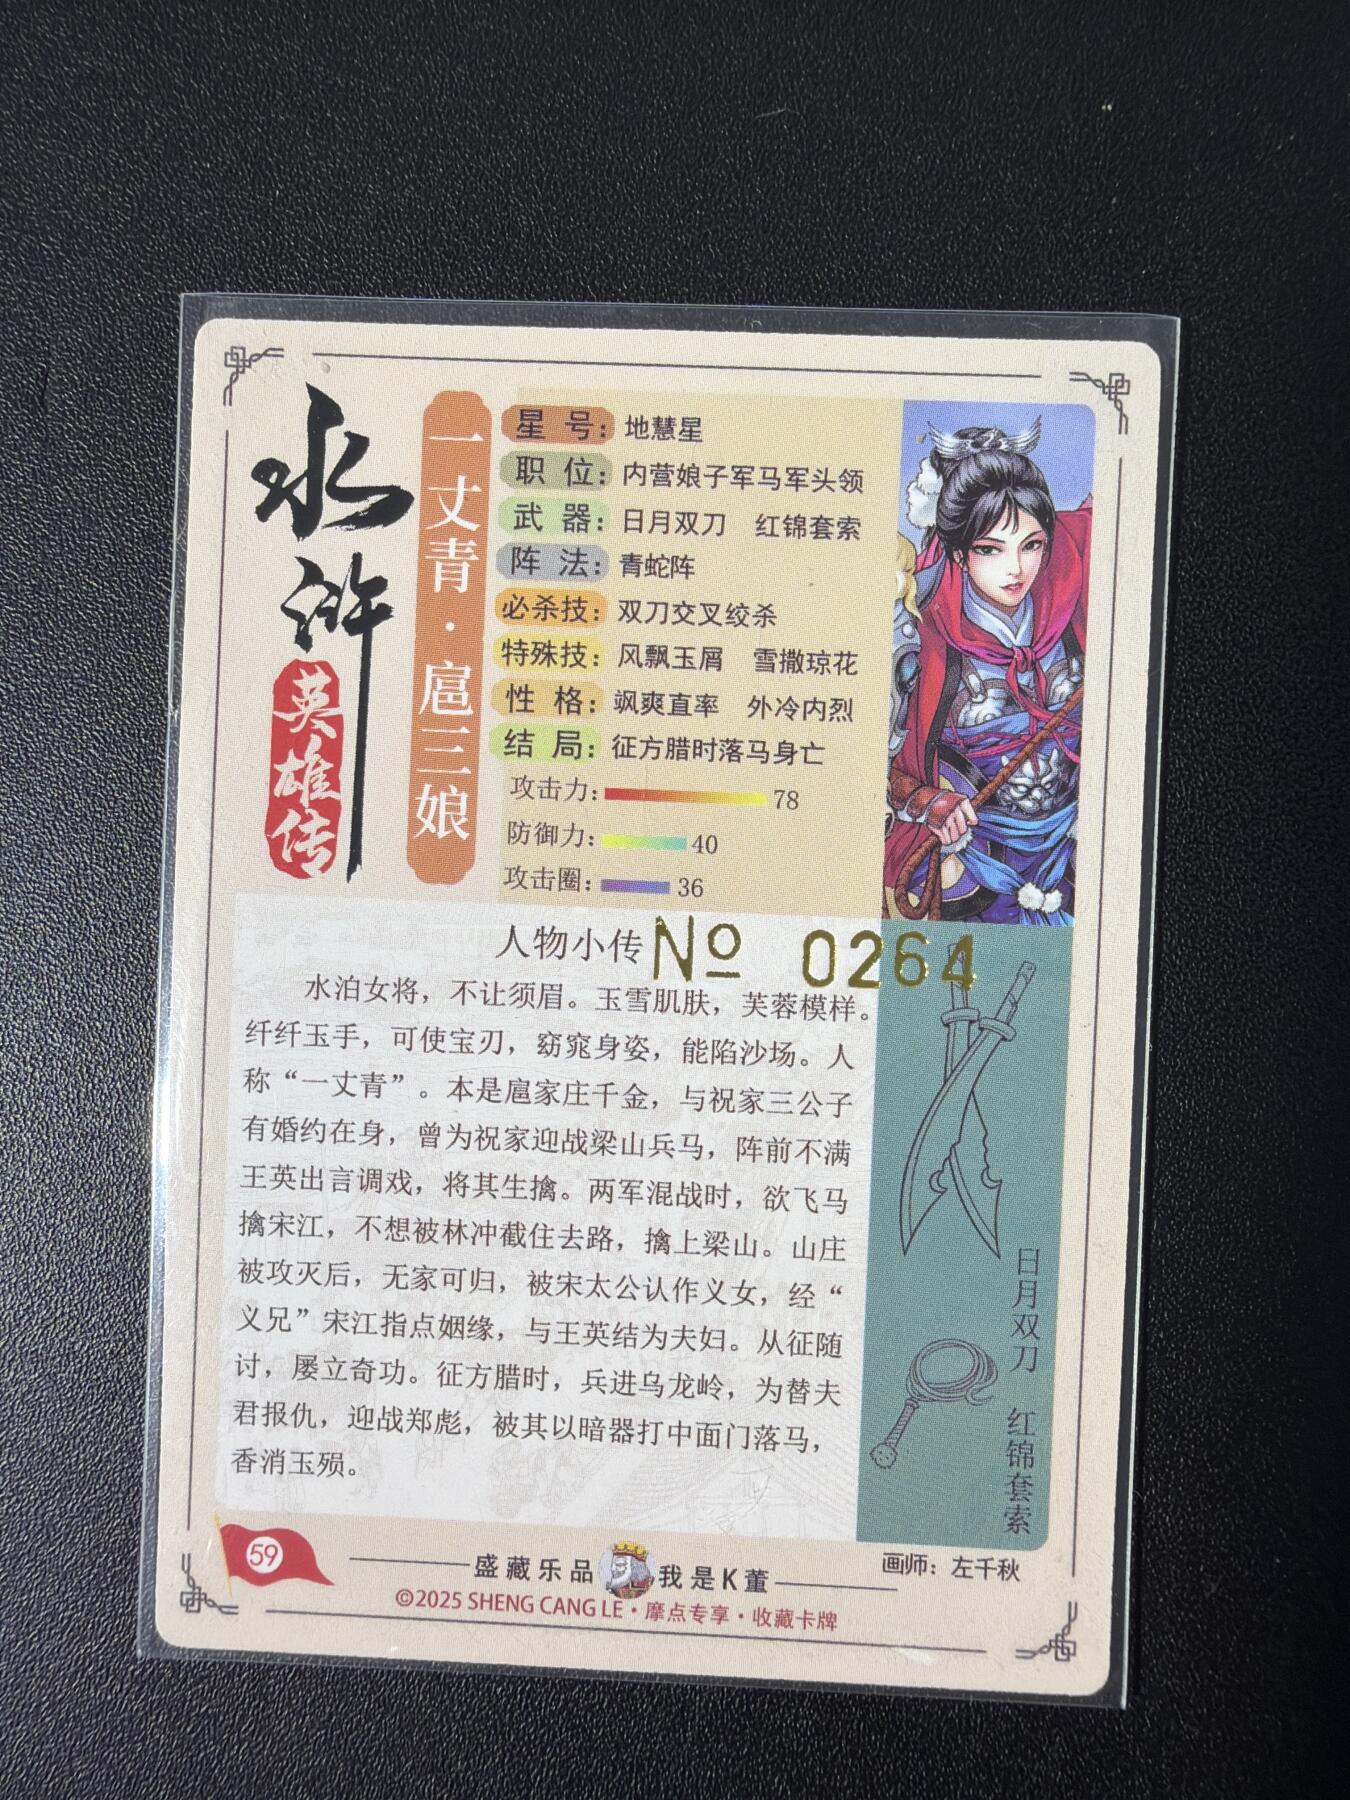 水浒
英雄传
一丈青·扈三娘
星号：地慧星
职位：内营娘子军马军头领
武器：日月双刀 红锦套索
阵法：青蛇阵
必杀技：双刀交叉绞杀
特殊技：风飘玉屑 雪撒琼花
性格：飒爽直率 外冷内烈
结局：征方腊时落马身亡
攻击力：78
防御力：40
攻击圈：36
人物小传 No 0264
水泊女将，不让须眉。玉雪肌肤，芙蓉模样。
纤纤玉手，可使宝刃，窈窕身姿，能陷沙场。人
称“一丈青”。本是扈家庄千金，与祝家三公子
有婚约在身，曾为祝家迎战梁山兵马，阵前不满
王英出言调戏，将其生擒。两军混战时，欲飞马
擒宋江，不想被林冲截住去路，擒上梁山。山庄
被攻灭后，无家可归，被宋太公认作义女，经“
义兄”宋江指点姻缘，与王英结为夫妇。从征随
讨，屡立奇功。征方腊时，兵进乌龙岭，为替夫
君报仇，迎战郑彪，被其以暗器打中面门落马，
香消玉殒。
日月双刀
红锦套索
59
盛藏乐品 我是K董
画师：左千秋
©2025 SHENG CANG LE·摩点专享·收藏卡牌